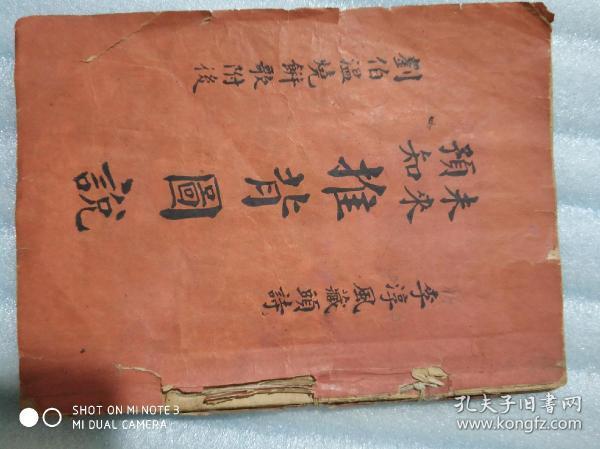 李淳風藏頭詩
未來
預知
推背圖說
劉伯溫燒餅歌附後
SHOT ON MI NOTE 3
MI DUAL CAMERA
孔夫子旧书网
www.kongfz.com